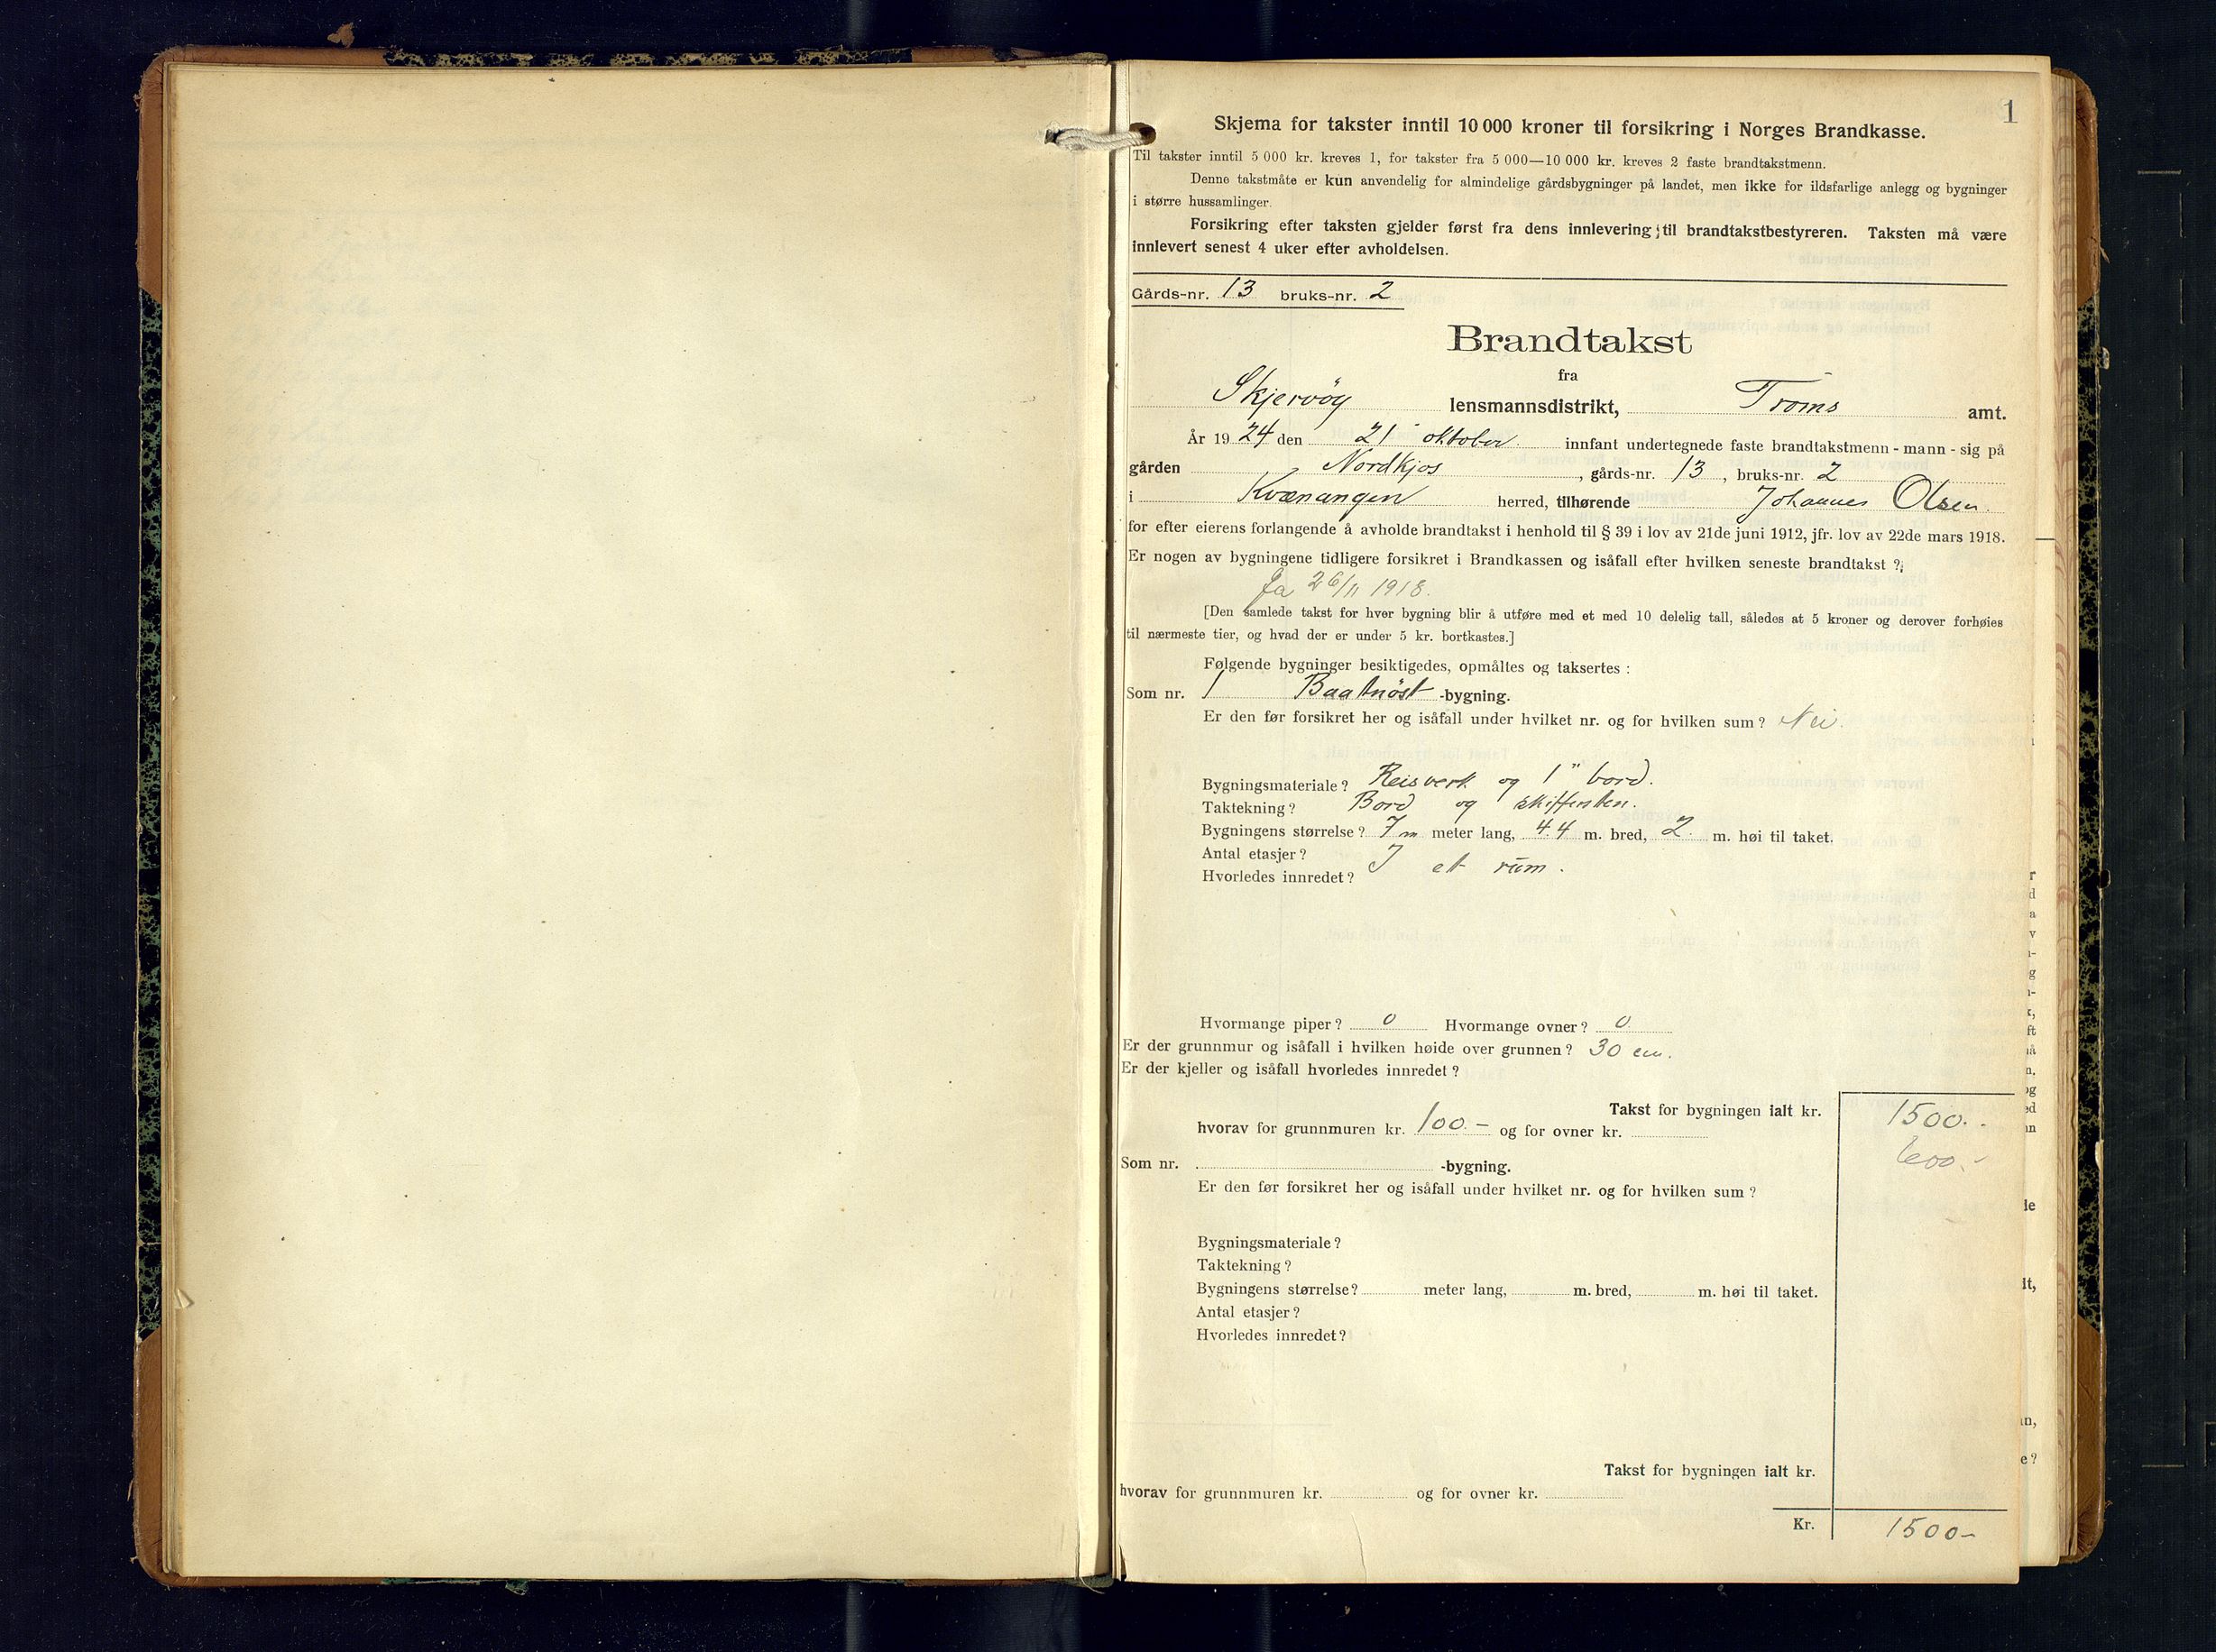 1
Skjema for takster inntil 10 000 kroner til forsikring i Norges Brandkasse.
Til takster inntil 5 000 kr. kreves 1, for takster fra 5 000—10 000 kr. kreves 2 faste brandtakstmenn.
Denne takstmåte er kun anvendelig for almindelige gårdsbygninger på landet, men ikke for ildsfarlige anlegg og bygninger
i større hussamlinger.
Forsikring efter taksten gjelder først fra dens innlevering til brandtakstbestyreren. Taksten må være
innlevert senest 4 uker efter avholdelsen.
Gårds-nr. 13 bruks-nr. 2
Brandtakst
fra
Skjervöy lensmannsdistrikt, Troms amt.
År 1924 den 21 oktober innfant undertegnede faste brandtakstmenn - mann - sig på
gården Nordkjos, gårds-nr. 13, bruks-nr. 2
i Kvænangen herred, tilhørende Johannes Olsen.
for efter eierens forlangende å avholde brandtakst i henhold til § 39 i lov av 21de juni 1912, jfr. lov av 22de mars 1918.
Er nogen av bygningene tidligere forsikret i Brandkassen og isåfall efter hvilken seneste brandtakst ?
Ja 26/11 1918.
[Den samlede takst for hver bygning blir å utføre med et med 10 delelig tall, således at 5 kroner og derover forhøies
til nærmeste tier, og hvad der er under 5 kr. bortkastes.]
Følgende bygninger besiktigedes, opmåltes og taksertes :
Som nr. 1 Baatnöst -bygning.
Er den før forsikret her og isåfall under hvilket nr. og for hvilken sum? Nei.
Bygningsmateriale? Reisverk og 1" bord.
Taktekning? Bord og skiffersten.
Bygningens størrelse? 7 m meter lang, 4.4 m. bred, 2. m. høi til taket.
Antal etasjer?
Hvorledes innredet? I et rum.
Hvormange piper? 0 Hvormange ovner? 0
Er der grunnmur og isåfall i hvilken høide over grunnen? 30 cm.
Er der kjeller og isåfall hvorledes innredet ?
Takst for bygningen ialt kr. 1500.-
hvorav for grunnmuren kr. 100.- og for ovner kr.
600.-
Som nr. -bygning.
Er den før forsikret her og isåfall under hvilket nr. og for hvilken sum ?
Bygningsmateriale ?
Taktekning ?
Bygningens størrelse? meter lang, m. bred, m. høi til taket.
Antal etasjer ?
Hvorledes innredet?
Takst for bygningen ialt kr.
hvorav for grunnmuren kr. og for ovner kr.
Kr. 1500-